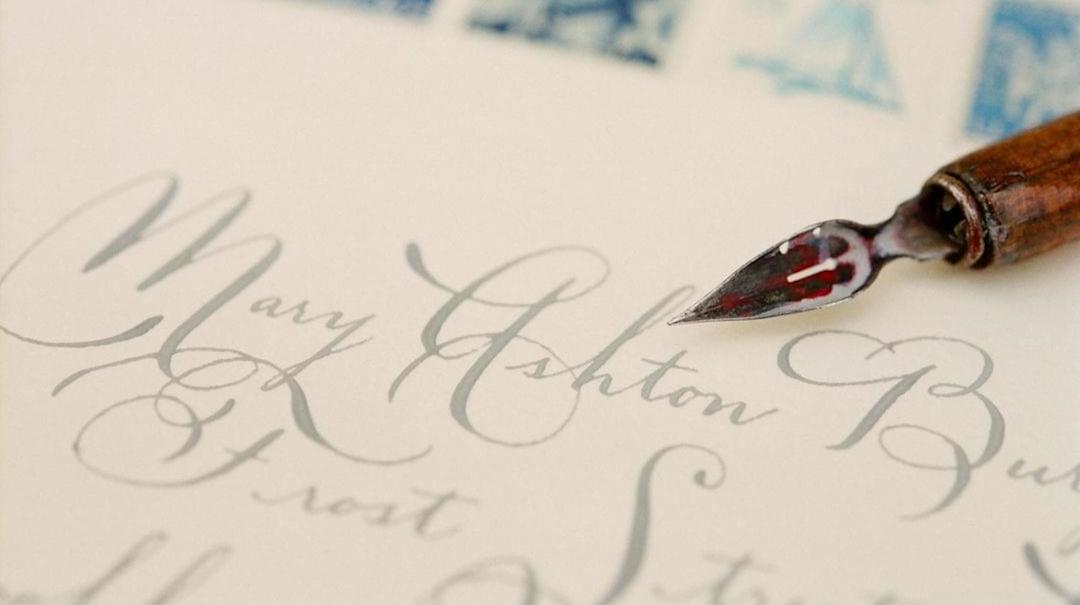 Mary Ashton Bur
Frost Stre